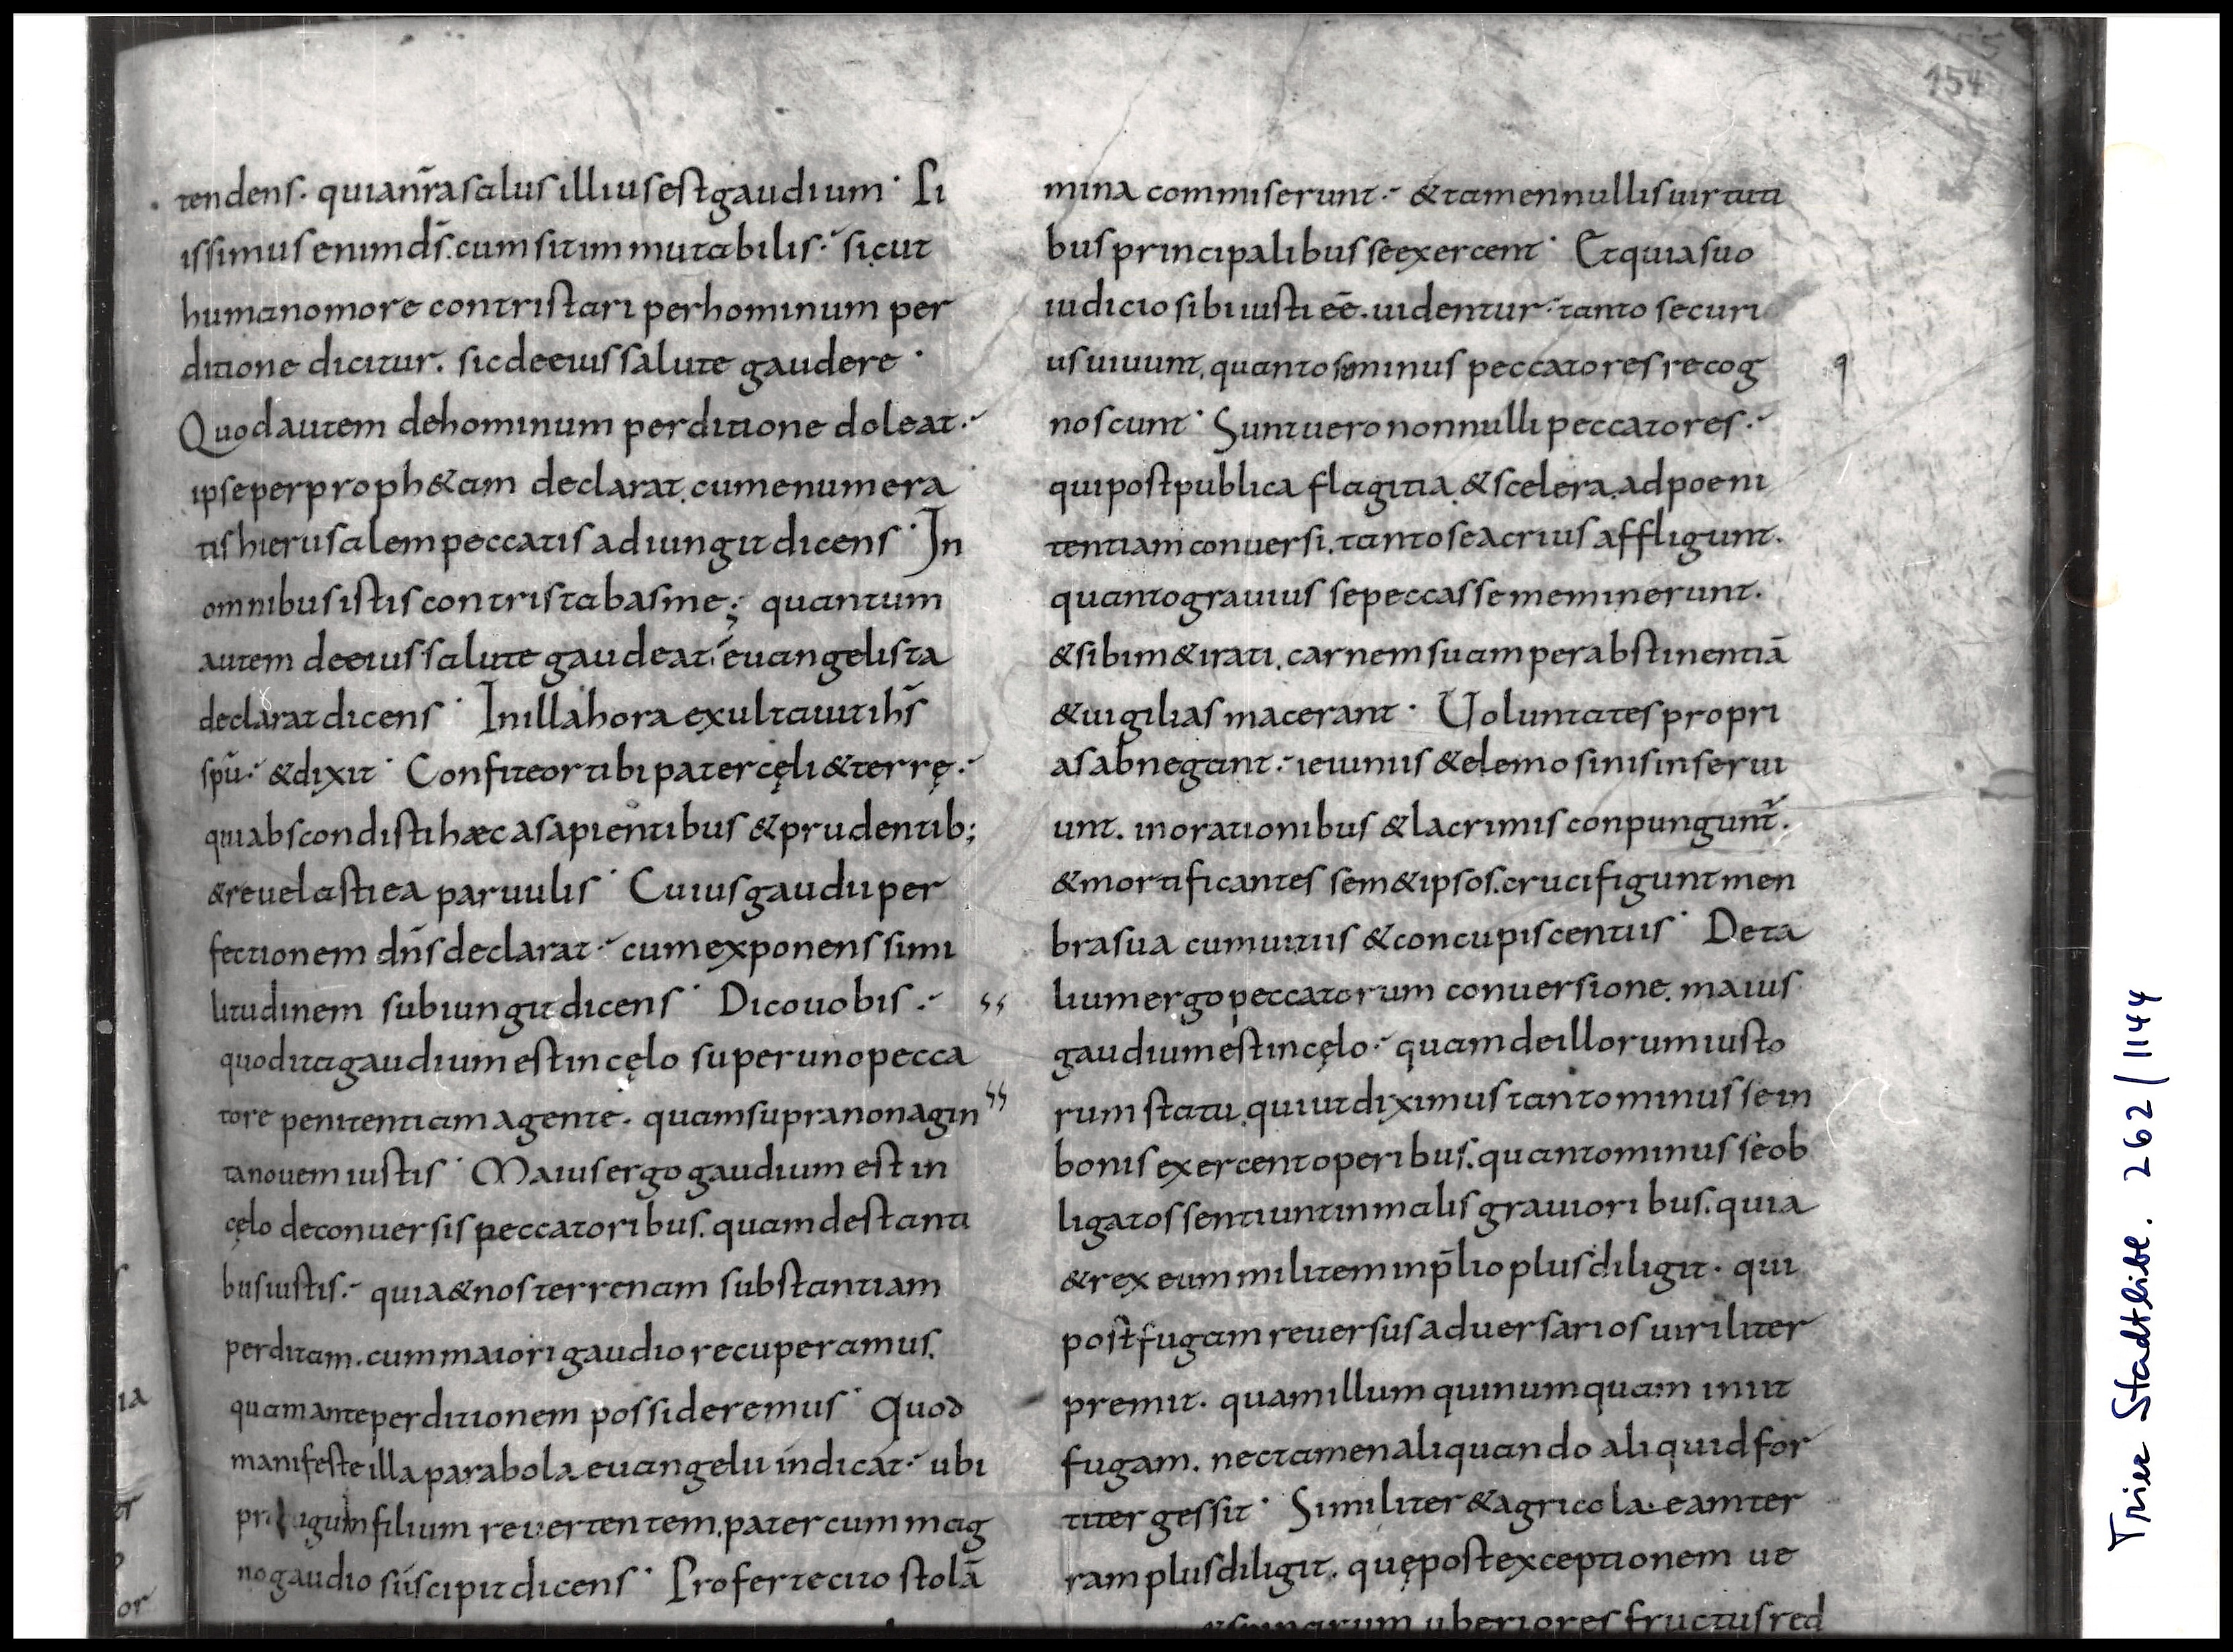 154
tendens. quia nr̄a salus illius est gaudium · Pi
issimus enim ds̄. cum sit immutabilis. sicut
humano more contristari per hominum per
ditione dicitur. sic de eius salute gaudere ·
Quod autem de hominum perditione doleat.
ipse per proph&am declarat. cum enumera
tis hierusalem peccatis adiungit dicens · In
omnibus istis contristabas me; quantum
autem de eius salute gaudeat. euangelista
declarat dicens · In illa hora exultauit ihs̄
spū. & dixit · Confiteor tibi pater cęli & terrę.
qui abscondisti hæc a sapientibus & prudentib;
& reuelasti ea paruulis · Cuius gaudii per
fectionem dn̄s declarat. cum exponens simi
litudinem subiungit dicens · Dico uobis.
quod ita gaudium est in cęlo super uno pecca
tore penitentiam agente. quam supra nonagin
ta nouem iustis · Maius ergo gaudium est in
cęlo de conuersis peccatoribus. quam de stanti
bus iustis. quia & nos terrenam substantiam
perditam. cum maiori gaudio recuperamus.
quam ante perditionem possideremus · Quod
manifeste illa parabola euangelii indicat. ubi
filium reuertentem. pater cum mag
no gaudio suscipit dicens · Proferte cito stolā
mina commiserunt. & tamen nullis uirtuti
bus principalibus se exercent · Et quia suo
iudicio sibi iusti eē. uidentur. tanto securi
us uiuunt. quanto se minus peccatores recog
noscunt · Sunt uero nonnulli peccatores.
qui post publica flagitia. & scelera. ad poeni
tentiam conuersi. tanto se acrius affligunt.
quanto grauius se peccasse meminerunt.
& sibim& irati. carnem suam per abstinentiā
& uigilias macerant · Uoluntates propri
as abnegant. ieiuniis & elemosinis inserui
unt. in orationibus & lacrimis conpungunt̄.
& mortificantes sem&ipsos. crucifigunt men
bra sua cum uitiis & concupiscentiis · De ta
lium ergo peccatorum conuersione. maius
gaudium est in cęlo. quam de illorum iusto
rum statu. qui ut diximus tanto minus se in
bonis exercent operibus. quanto minus se ob
ligatos sentiunt in malis grauioribus. quia
& rex eum militem in p̄lio plus diligit. qui
post fugam reuersus aduersarios uiriliter
premit. quam illum qui numquam iniit
fugam. nec tamen aliquando aliquid for
titer gessit · Similiter & agricola eam ter
ram plus diligit. quę post exceptionem ue
uberiores fructus red
Trier Stadtbibl. 262/1144